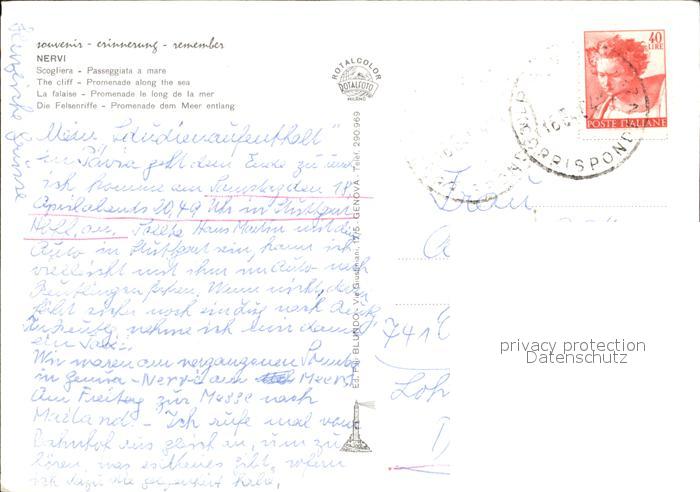 souvenir - erinnerung - remember
NERVI
Scogliera - Passeggiata a mare
The cliff - Promenade along the sea
La falaise - Promenade le long de la mer
Die Felsenriffe - Promenade dem Meer entlang
ROTALCOLOR
ROTALFOTO
MILANO
40
LIRE
POSTE ITALIANE
CORRISPOND
Ed. Fot. BLUNDO - Via Giustiniani, 17/5 - GENOVA - Telef. 290.969
Herzliche Grüsse
Mein "Studienaufenthalt"
in Pavia geht dem Ende zu und
ich komme am Samstag den 18.
April abends 20,49 Uhr in Stuttgart
Hbf. an. Sollte Hans Martin mit dem
Auto in Stuttgart sein, kann ich
vielleicht mit ihm im Auto nach
Reutlingen fahren. Wenn nicht, dann
fährt sicher noch ein Zug nach
nehme ich dann
ein Taxi.
Wir waren am vergangenen Sonntag
in Genua - Nervi am Meer.
Am Freitag zur Messe nach
Mailand. - Ich rufe mal vom
Bahnhof aus gleich an, um zu
hören, was es Neues gibt, sofern
ich dazu die Gelegenheit habe.
Frau
741
privacy protection
Datenschutz